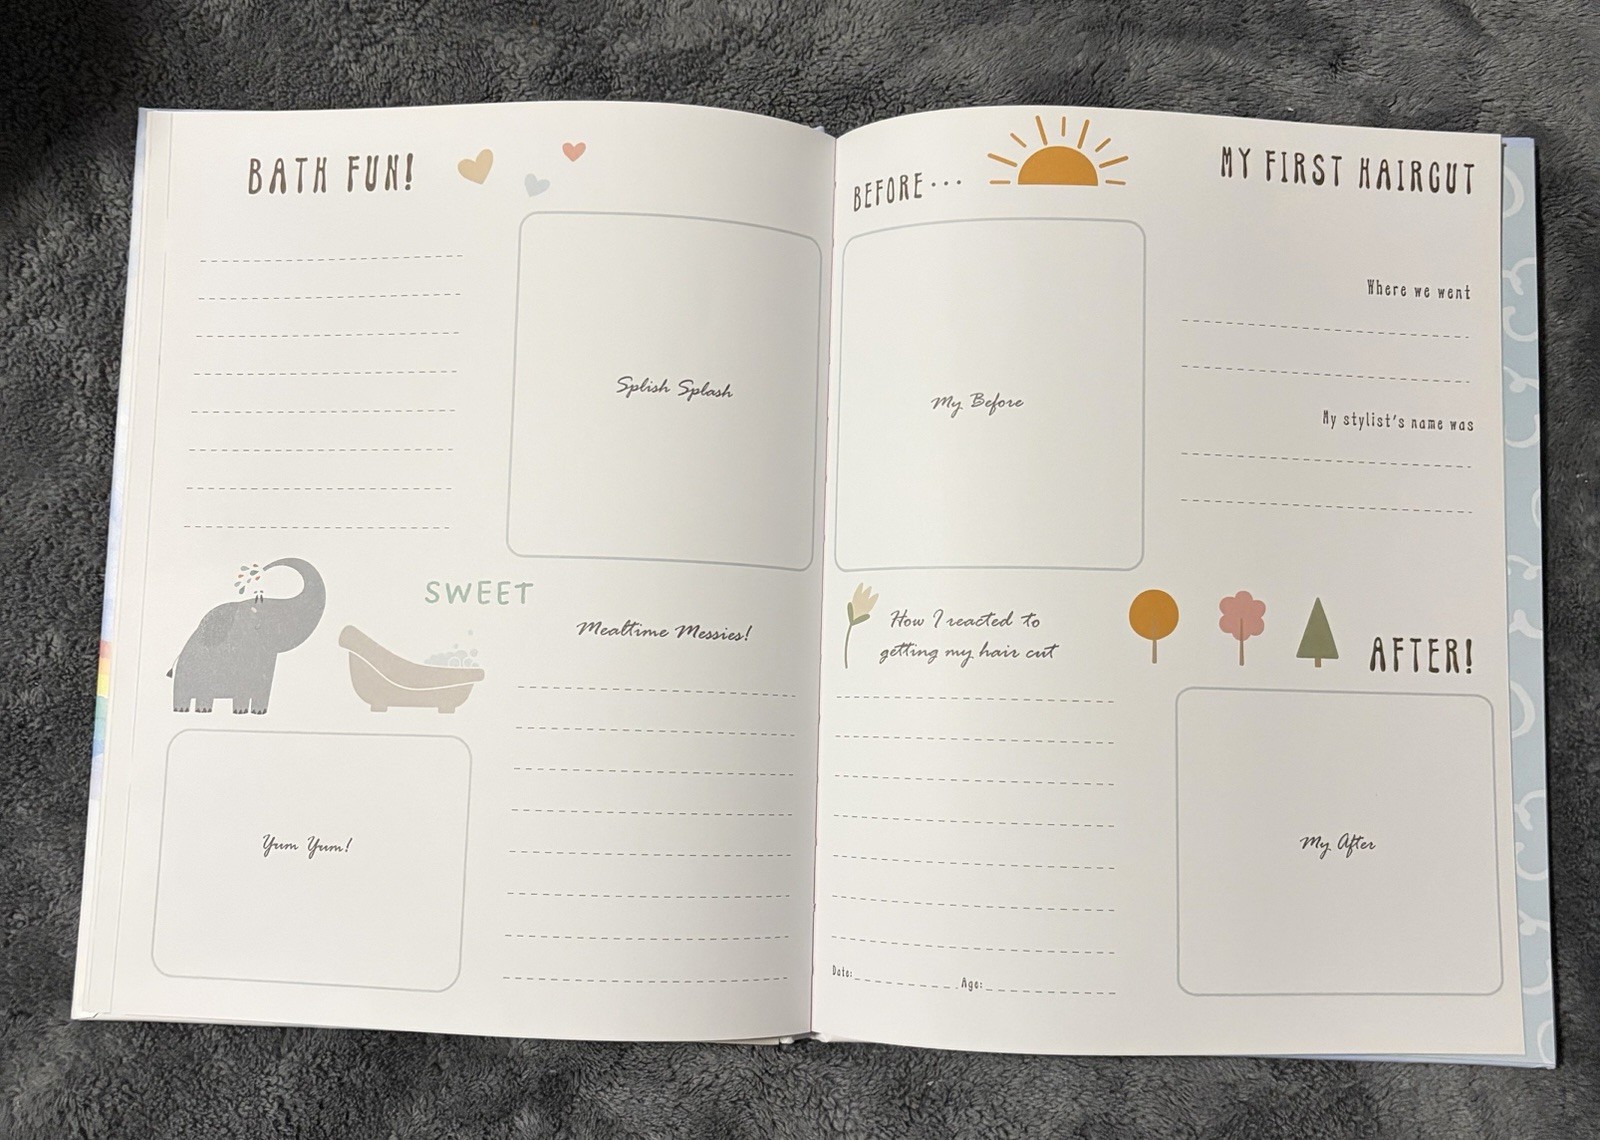 BATH FUN!
Splish Splash
SWEET
Mealtime Messies!
Yum Yum!
BEFORE...
MY FIRST HAIRCUT
Where we went
My Before
My stylist's name was
How I reacted to
getting my hair cut
AFTER!
My After
Date:
Age: